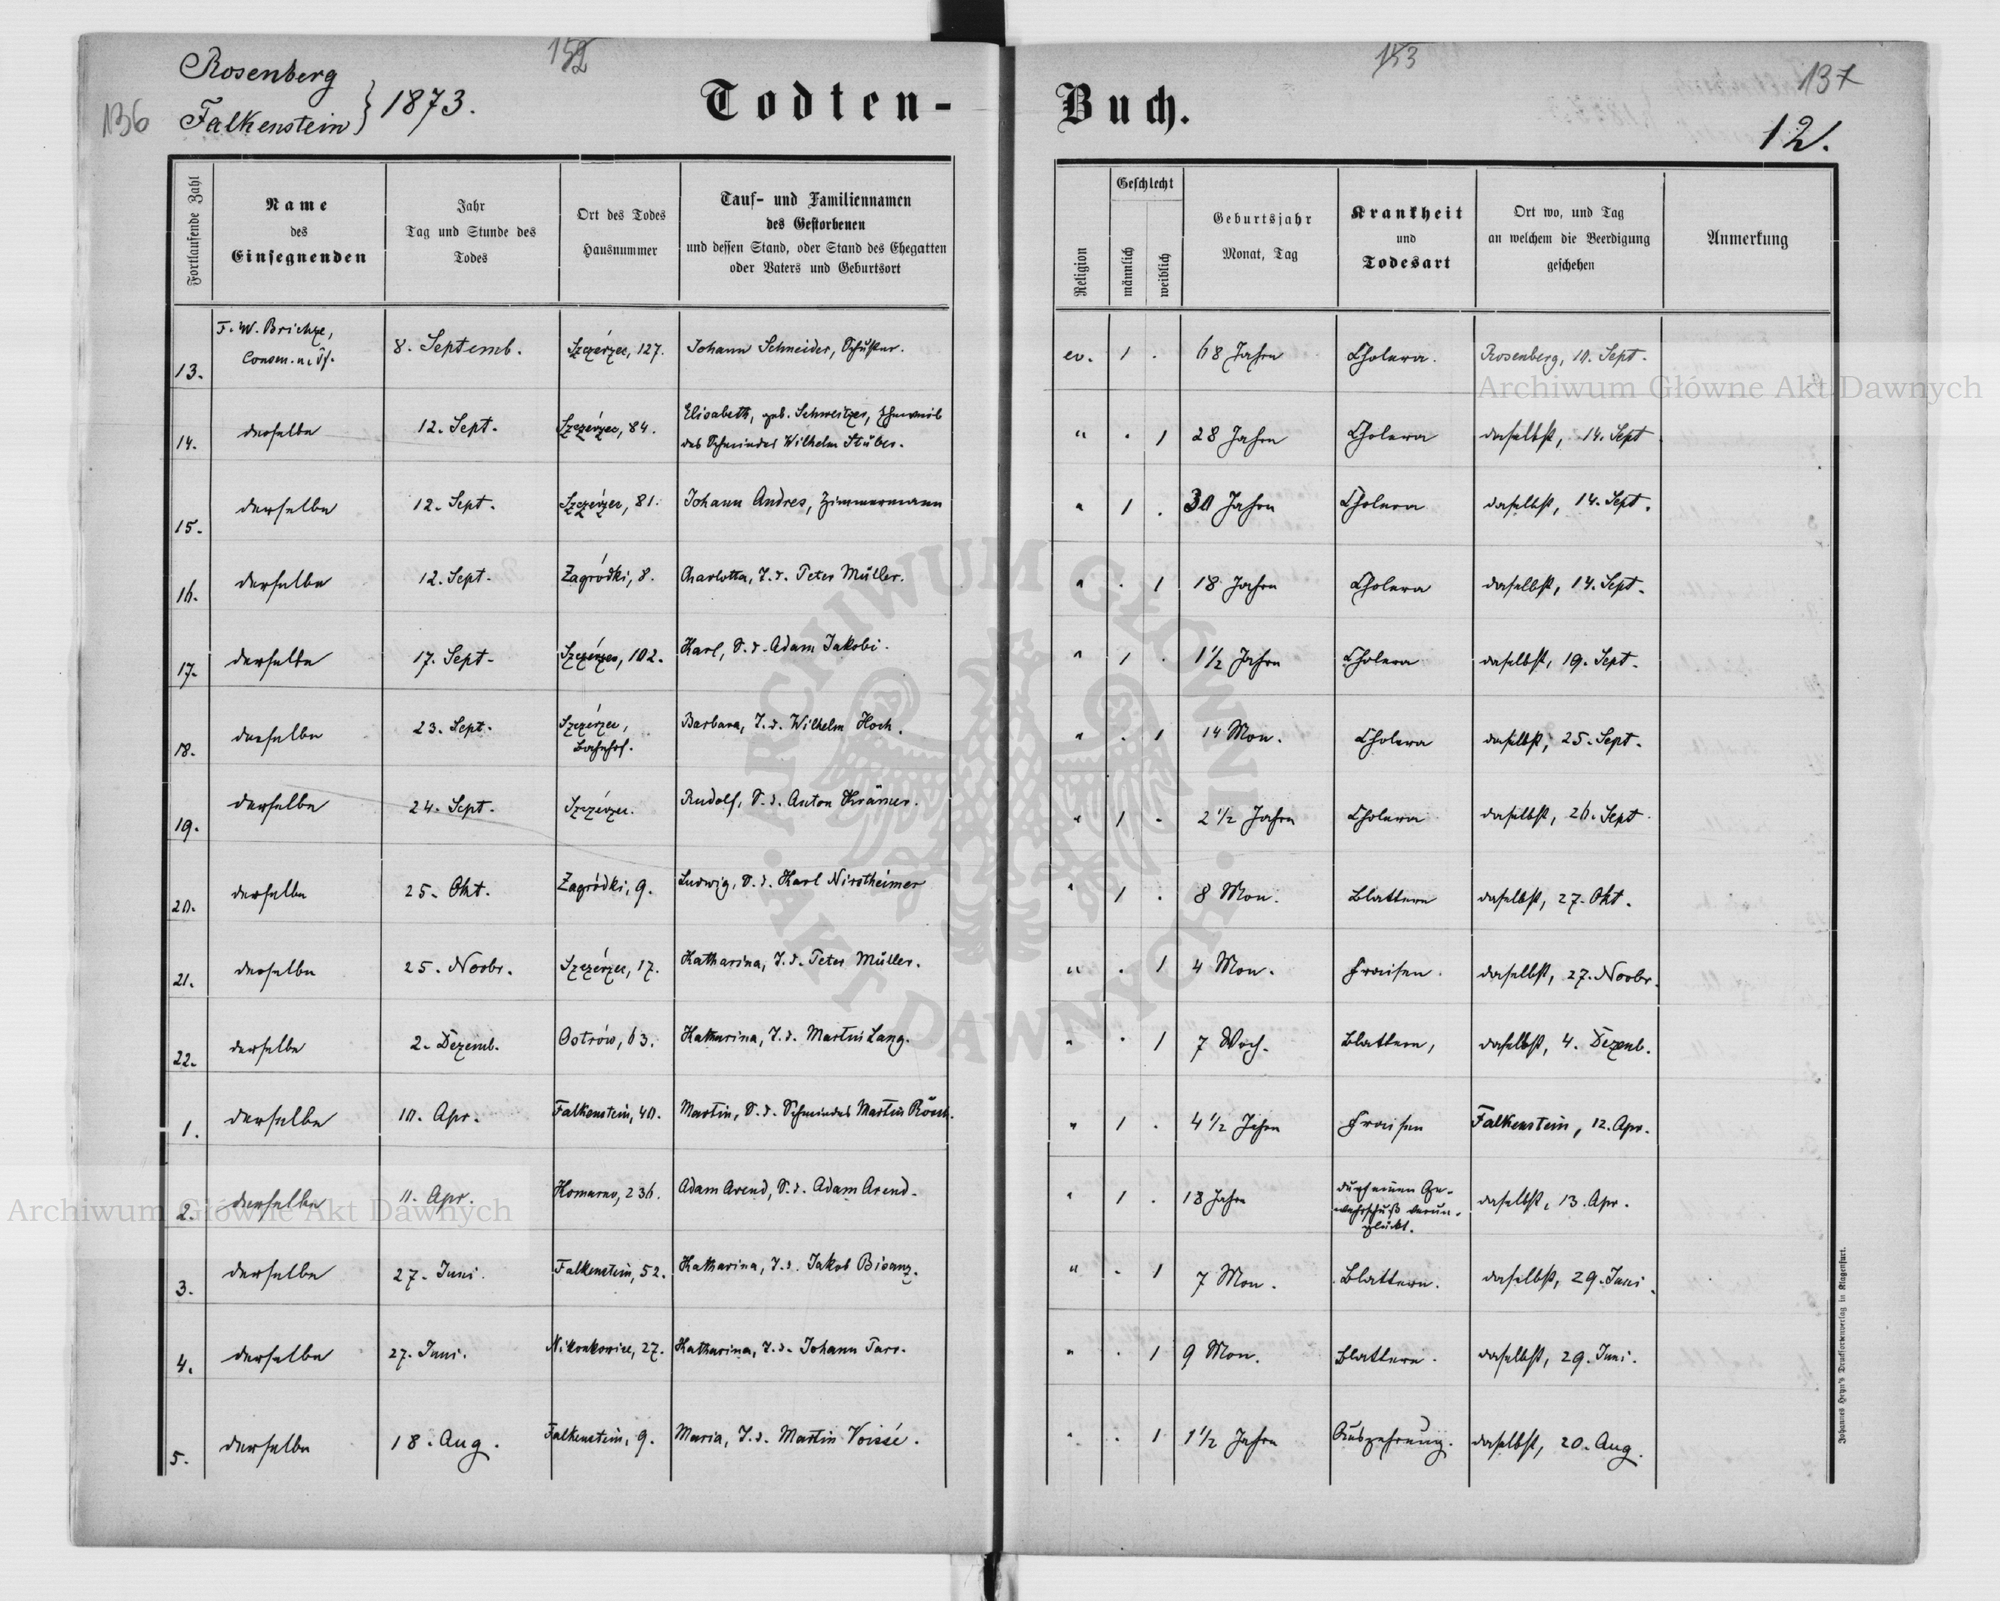 152
153
Rosenberg
Falkenstein } 1873.
136
137
12.
Todten-Buch.
Fortlaufende Zahl
Name
des
Einsegnenden
Jahr
Tag und Stunde des
Todes
Ort des Todes
Hausnummer
Tauf- und Familiennamen
des Gestorbenen
und dessen Stand, oder Stand des Ehegatten
oder Vaters und Geburtsort
Religion
Geschlecht
männlich
weiblich
Geburtsjahr
Monat, Tag
Krankheit
und
Todesart
Ort wo, und Tag
an welchem die Beerdigung
geschehen
Anmerkung
13. F. W. 8. Septemb. Szczérzec, 127. Johann Schneider, Schuster. ev. 1 . 68 Jahre Cholera. Rosenberg, 10. Sept.
14. derselbe 12. Sept. Szczérzec, 84. Elisabeth, geb. Schweitzer, Eheweib
des Schmiedes Wilhelm Stuber. " . 1 28 Jahre Cholera daselbst, 14. Sept
15. derselbe 12. Sept. Szczérzec, 81. Johann Andres, Zimmermann " 1 . 30 Jahre Cholera daselbst, 14. Sept.
16. derselbe 12. Sept. Zagródki, 8. Charlotta, T. d. Peter Müller. " . 1 18 Jahre Cholera daselbst, 14. Sept.
17. derselbe 17. Sept. Szczérzec, 102. Karl, S. d. Adam Jakobi. " 1 . 1 1/2 Jahre Cholera daselbst, 19. Sept.
18. derselbe 23. Sept. Szczérzec,
Bahnhof. Barbara, T. d. Wilhelm Hoch. " . 1 14 Mon. Cholera daselbst, 25. Sept.
19. derselbe 24. Sept. Szczérzec. Rudolf, S. d. Anton Krämer. " 1 . 2 1/2 Jahre Cholera daselbst, 26. Sept.
20. derselbe 25. Okt. Zagródki, 9. Ludwig, S. d. Karl Nirstheimer " 1 . 8 Mon. Blattern daselbst, 27. Okt.
21. derselbe 25. Novbr. Szczérzec, 17. Katharina, T. d. Peter Müller. " . 1 4 Mon. Fraisen. daselbst, 27. Novbr.
22. derselbe 2. Dezemb. Ostrów, 63. Katharina, T. d. Martin Lang. " . 1 7 Woch. Blattern, daselbst, 4. Dezemb.
1. derselbe 10. Apr. Falkenstein, 40. Martin, S. d. Schmiedes Martin " 1 . 4 1/2 Jahre Fraisen Falkenstein, 12. Apr.
2. derselbe 11. Apr. Komarno, 236. Adam Arend, S. d. Adam Arend. " 1 . 18 Jahre durch einen Ge-
wehrschuß verun-
glückt. daselbst, 13. Apr.
3. derselbe 27. Juni. Falkenstein, 52. Katharina, T. d. Jakob Bisanz. " . 1 7 Mon. Blattern. daselbst, 29. Juni.
4. derselbe 27. Juni. Nikonkowice, 27. Katharina, T. d. Johann " . 1 9 Mon. Blattern. daselbst, 29. Juni.
5. derselbe 18. Aug. Falkenstein, 9. Maria, T. d. Martin Voissé. " . 1 1 1/2 Jahre Auszehrung. daselbst, 20. Aug.
Johannes Heyn's Drucksortenverlag in Klagenfurt.
Archiwum Główne Akt Dawnych
Archiwum Główne Akt Dawnych
ARCHIWUM GŁÓWNE
· AKT DAWNYCH ·